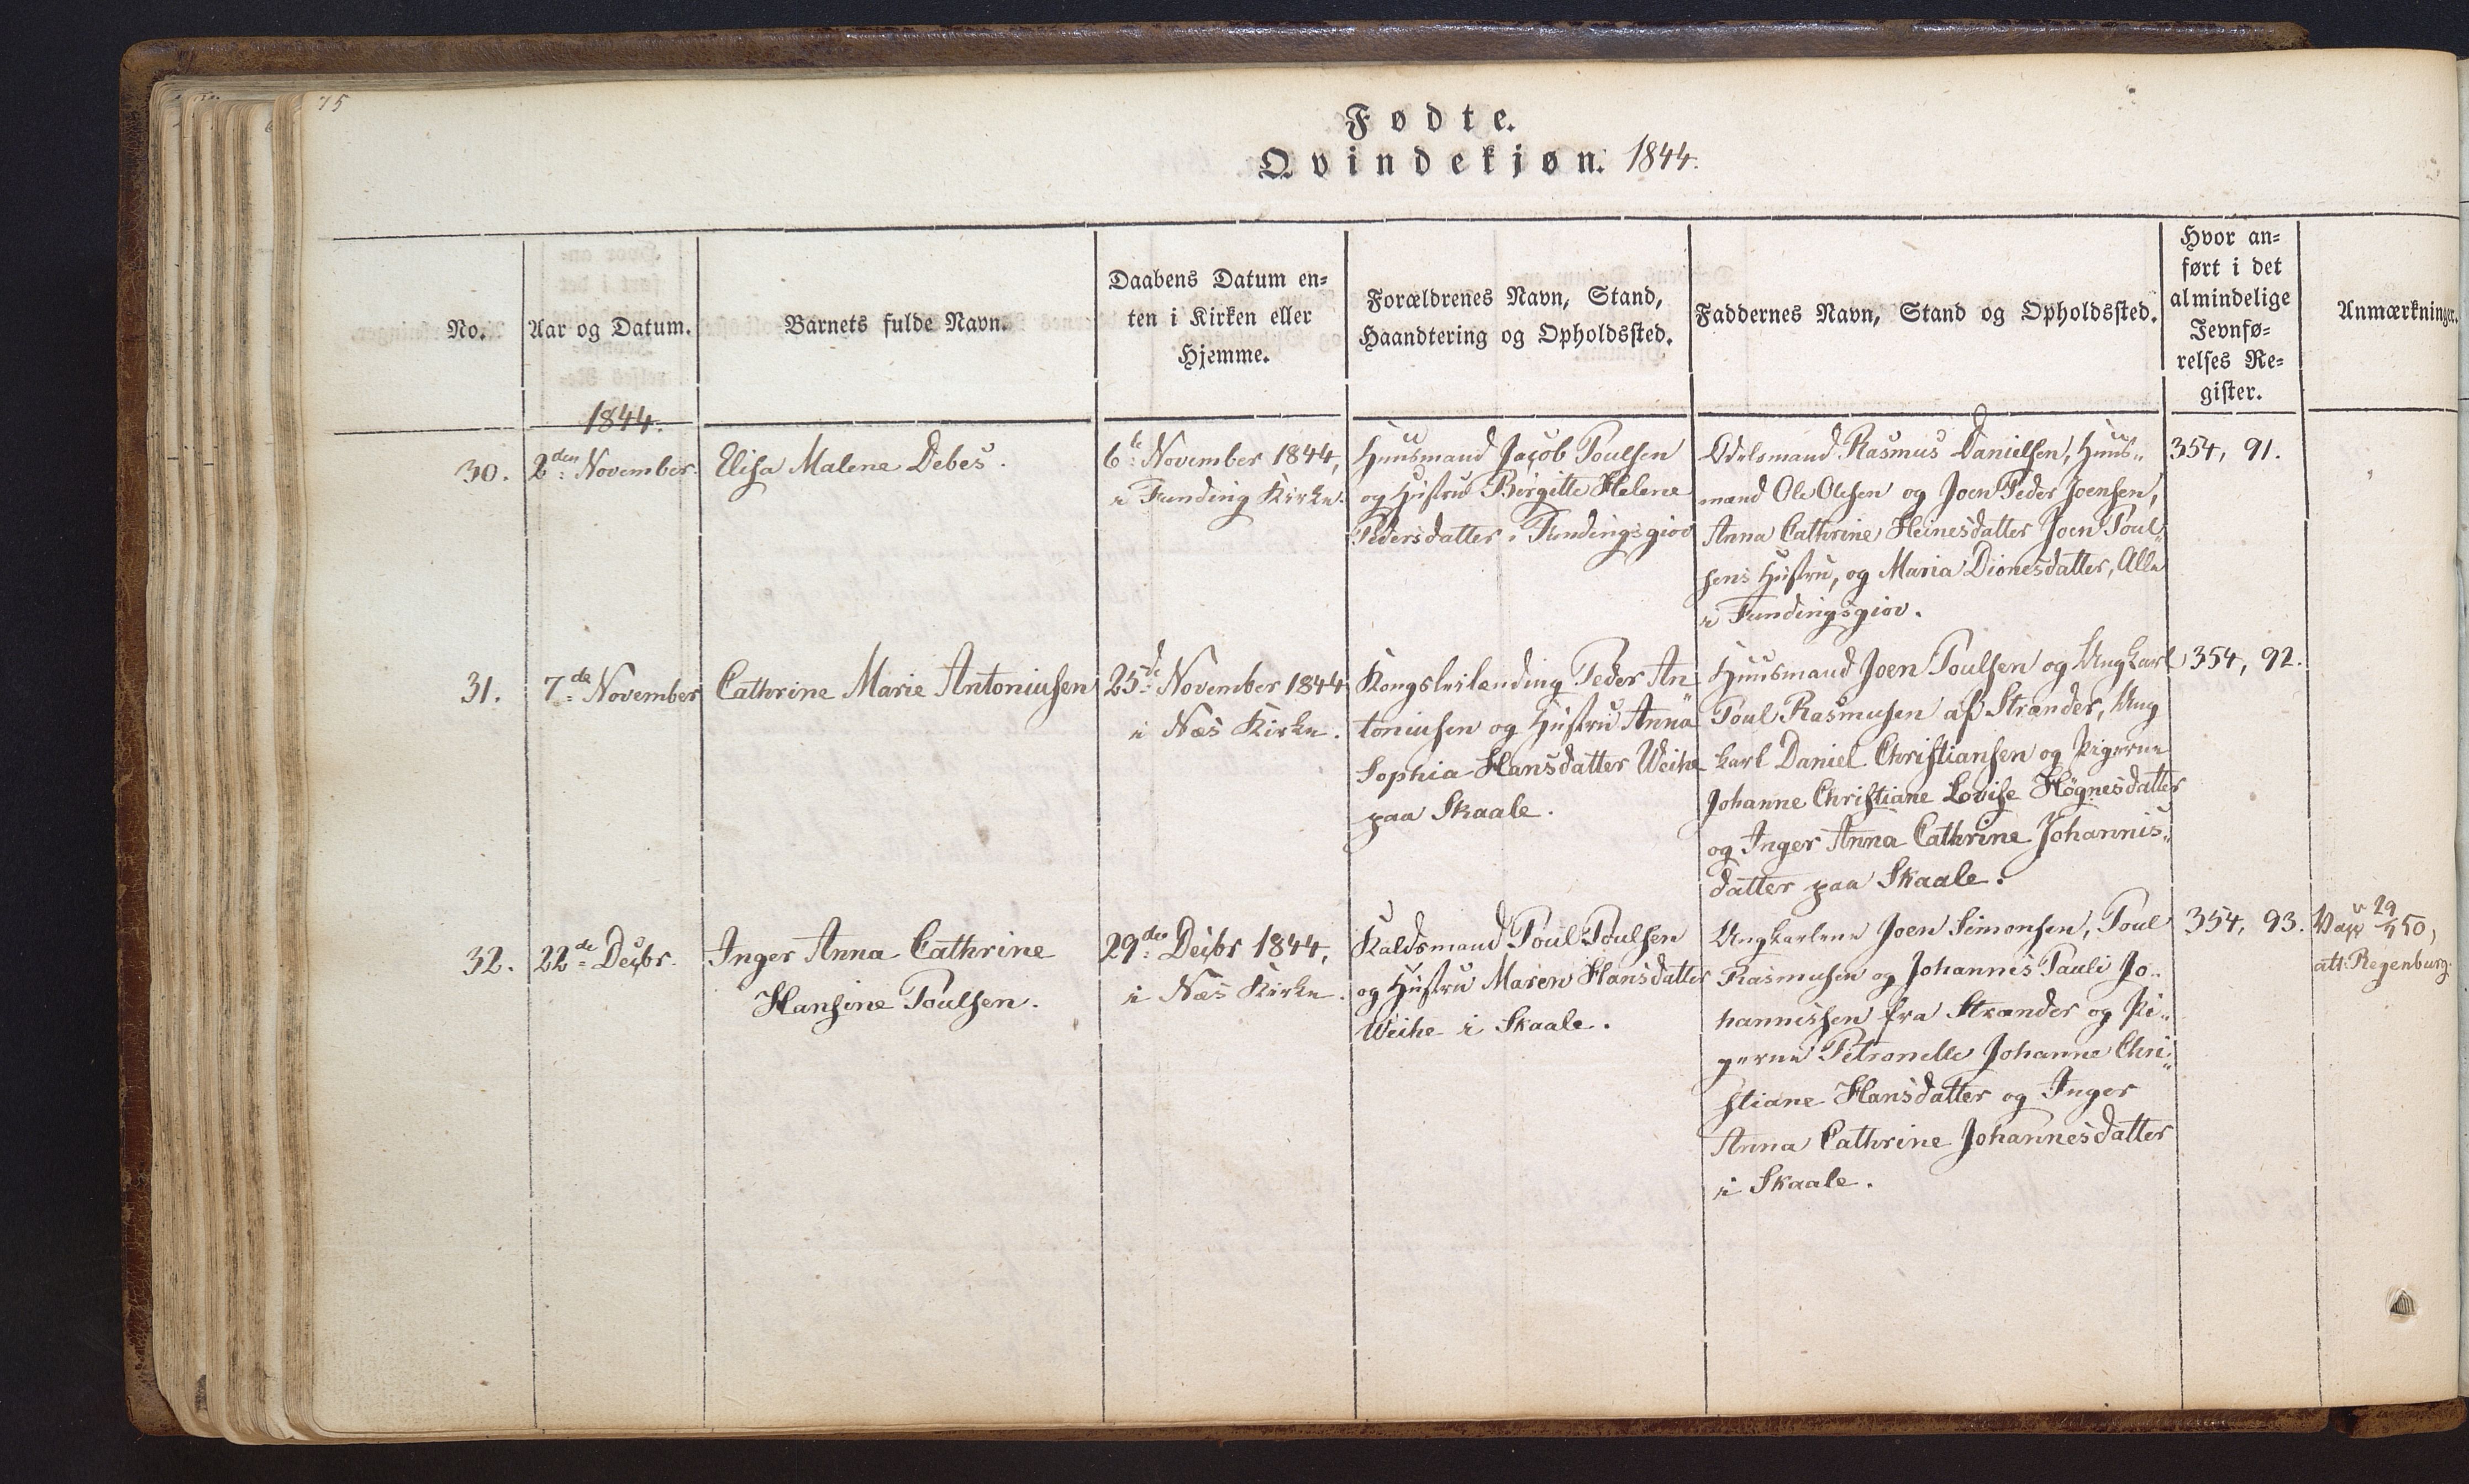 75
Fødte.
Qvindekjøn. 1844.
No.
Aar og Datum.
Barnets fulde Navn.
Daabens Datum en-
ten i Kirken eller
Hjemme.
Forældrenes Navn, Stand,
Haandtering og Opholdssted.
Faddernes Navn, Stand og Opholdssted.
Hvor an-
ført i det
almindelige
Jevnfø-
relses Re-
gister.
Anmærkninger.
1844.
30.
2den November.
Elisa Malene Debes.
6te November 1844,
i Funding Kirke.
Huusmand Jacob Poulsen
og Hustru Birgitte Helene
Pedersdatter i Fundingsgiov
Odelsmand Rasmus Danielsen, Huus-
mand Ole Olesen og Joen Peder Joensen,
Anna Cathrine Heinesdatter Joen Poul-
sens Hustru, og Maria Dionesdatter, Alle
i Fundingsgiov.
354, 91.
31.
7de November
Cathrine Marie Antoniusen
25de November 1844
i Næs Kirke.
Kongsleilænding Peder An-
toniusen og Hustru Anna
Sophia Hansdatter Weihe
paa Skaale.
Huusmand Joen Poulsen og Ungkarl
Poul Rasmusen af Strænder, Ung
karl Daniel Christiansen og Pigerne
Johanne Christiane Lovise Høgnesdatter
og Inger Anna Cathrine Johannis-
datter paa Skaale.
354, 92.
32.
22de Decbr.
Inger Anna Cathrine
Hansine Poulsen.
29de Decbr 1844,
i Næs Kirke.
Kaldsmand Poul Poulsen
og Hustru Maren Hansdatter
Weihe i Skaale.
Ungkarlene Joen Simonsen, Poul
Rasmusen og Johannis Pauli Jo-
hannissen fra Strænder og Pi-
gerne Petronelle Johanne Chri-
stiane Hansdatter og Inger
Anna Cathrine Johannesdatter
i Skaale.
354, 93.
att: Regenburg.